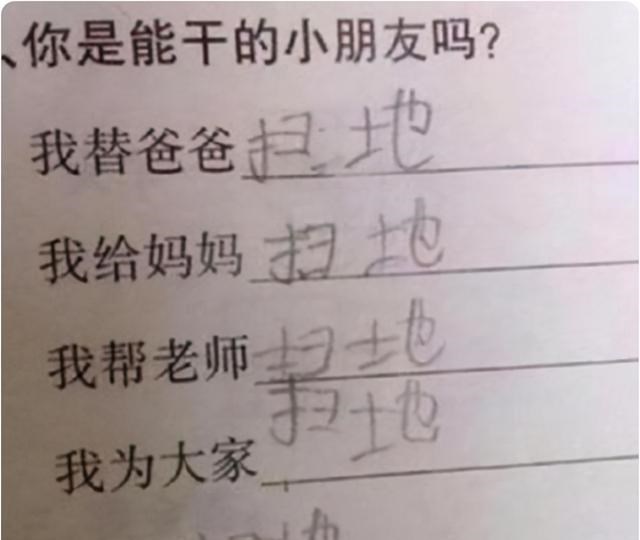 、你是能干的小朋友吗?
我替爸爸扫地
我给妈妈扫地
我帮老师扫地
我为大家扫地